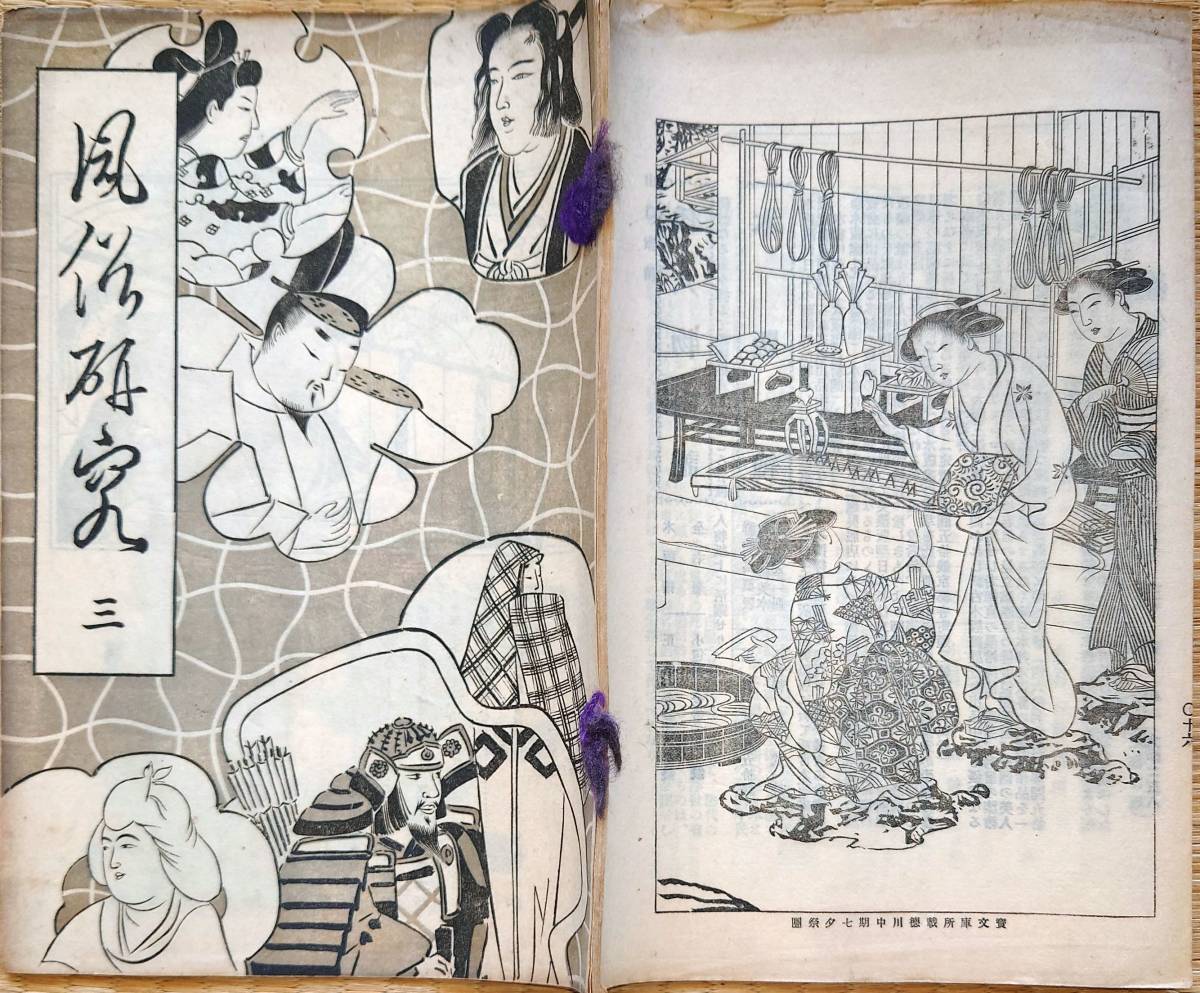 風俗研究
三
寳文庫所載德川中期七夕祭圖